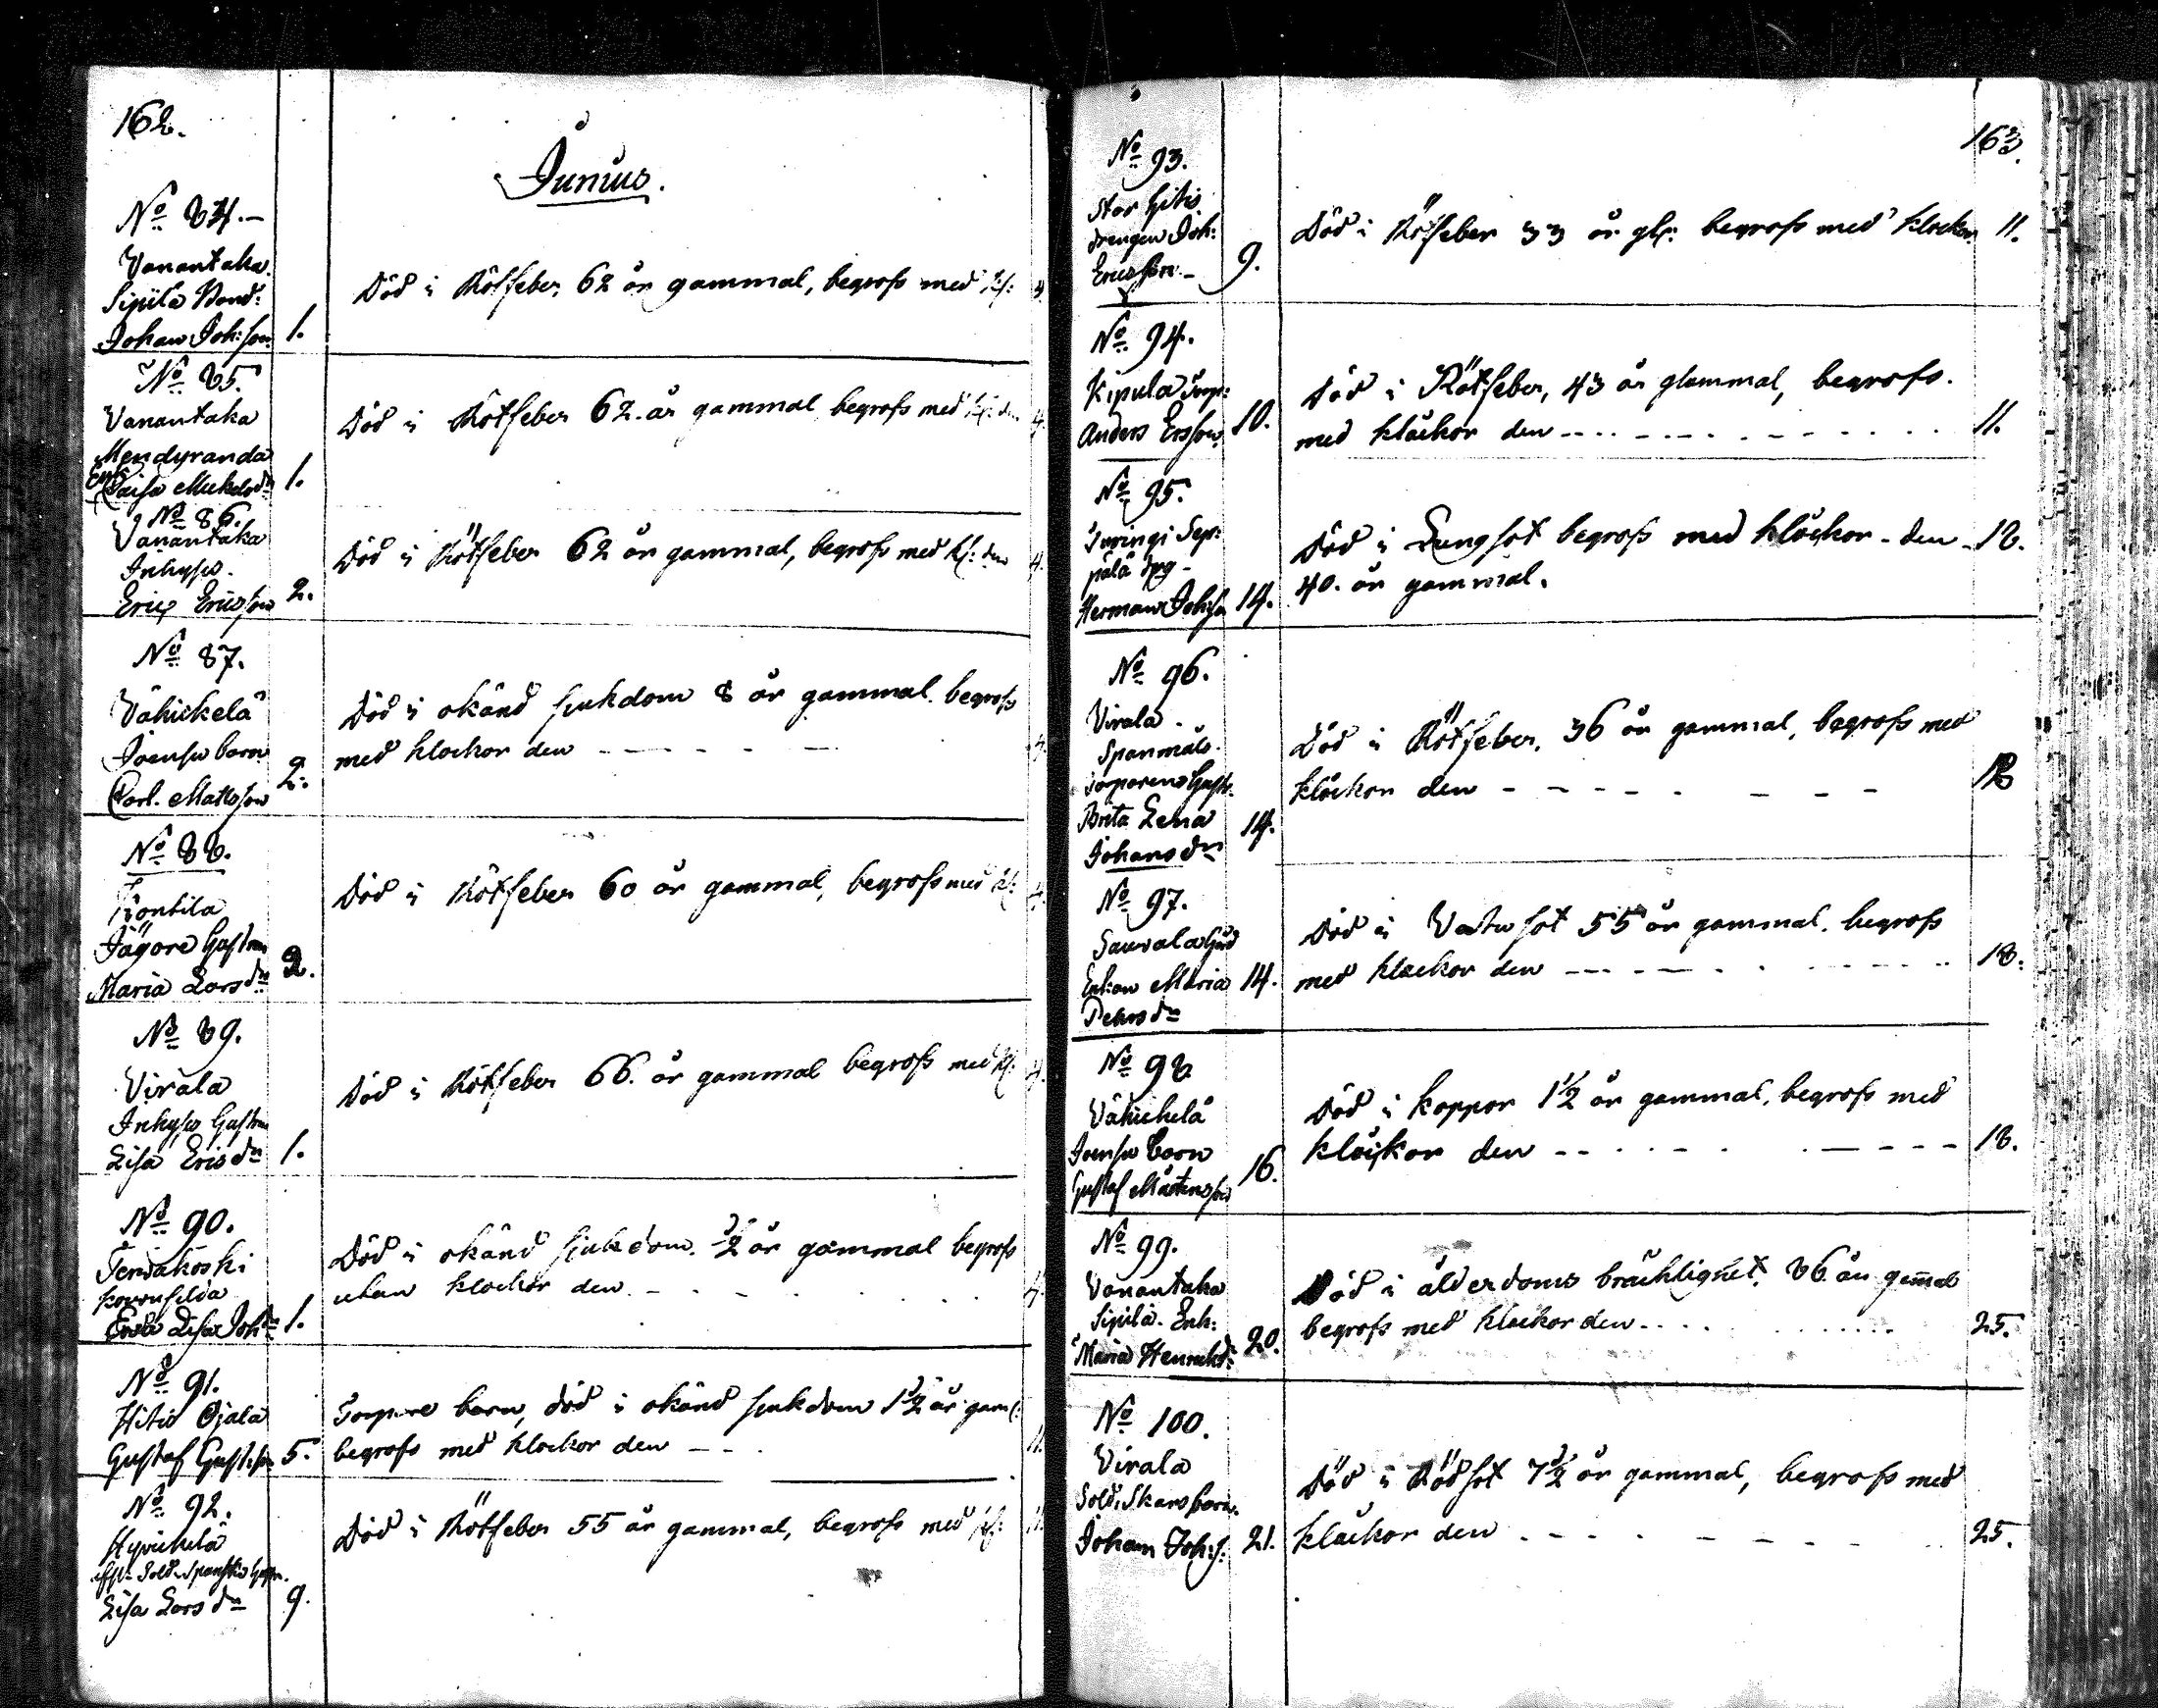 162.
Junius.
No 84.
Vanantaka
Sipilä Bond:
Johan Joh:son 1.
Död i Rötfeber 62 år gammal, begrofs med kl: 4.
No 85.
Vanantaka
Mendyranda
Enk: Caisa Michelsdr 1.
Död i Rötfeber 62 år gammal begrofs med kl: den 4.
No 86.
Vanantaka
Inhyses
Eric Ericsson 2.
Död i Rötfeber 62 år gammal, begrofs med kl: den 4.
No 87.
Vähickelä
Joensu barn
Carl Matsson 2.
Död i okänd sjukdom 8 år gammal begrofs
med klockor den 4.
No 88.
Jägare hustrun
Maria Larsdr 2.
Död i Rötfeber 60 år gammal, begrofs med kl: 4.
No 89.
Virala
Inhyses hustrun
Lisa Ericsdr 1.
Död i Rötfeber 66. år gammal begrofs med kl: 4.
No 90.
Tervakoski
Ewa Lisa Johdr 1.
Död i okänd sjukdom 1/2 år gammal begrofs
utan klockor den 4.
No 91.
Hitis Ojala
Gustaf Gustsson 5.
Torpare barn, död i okänd sjukdom 1 1/2 år gaml:
begrofs med klockor den 11.
No 92.
Hyvickelä
Sold. Spansks
Lisa Larsdr 9.
Död i Rötfeber 55 år gammal, begrofs med kl: 11.
163.
No 93.
Stor Hitis
drengen Joh:
Ericsson 9.
Död i Rötfeber 33 år gl: begrofs med klockor 11.
No 94.
Kipula Torp:
Anders Ersson 10.
Död i Rötfeber, 43 år glammal, begrofs.
med klåckor den 11.
No 95.
Turingi Sep:
pälä
Herman Johsson 14.
Död i Lungsot begrofs med klåckor den 18.
40. år gammal.
No 96.
Virala
Spanmäs
torparens hustr:
Brita Lena
Johansdr 14.
Död i Rötfeber, 36 år gammal, begrofs med
klåckor den 18
No 97.
Sauvala
Enkan Maria
Petersdr 14.
Död i Vatusot 55 år gammal. begrofs
med klockor den 18.
No 98
Vähickelä
Joensu barn
Gustaf Mårtensson 16.
Död i koppor 1 1/2 år gammal, begrofs med
klåckor den 18.
No 99.
Vanantaka
Sipilä Enk:
Maria Henriksdr 20.
Död i ålderdoms bräcklighet, 86 år gammal
begrofs med klockor den 25.
No 100.
Virala
Sold. Skans barn
Johan Joh:s: 21.
Död i Rödsot 7 1/2 år gammal, begrofs med
klåckor den 25.